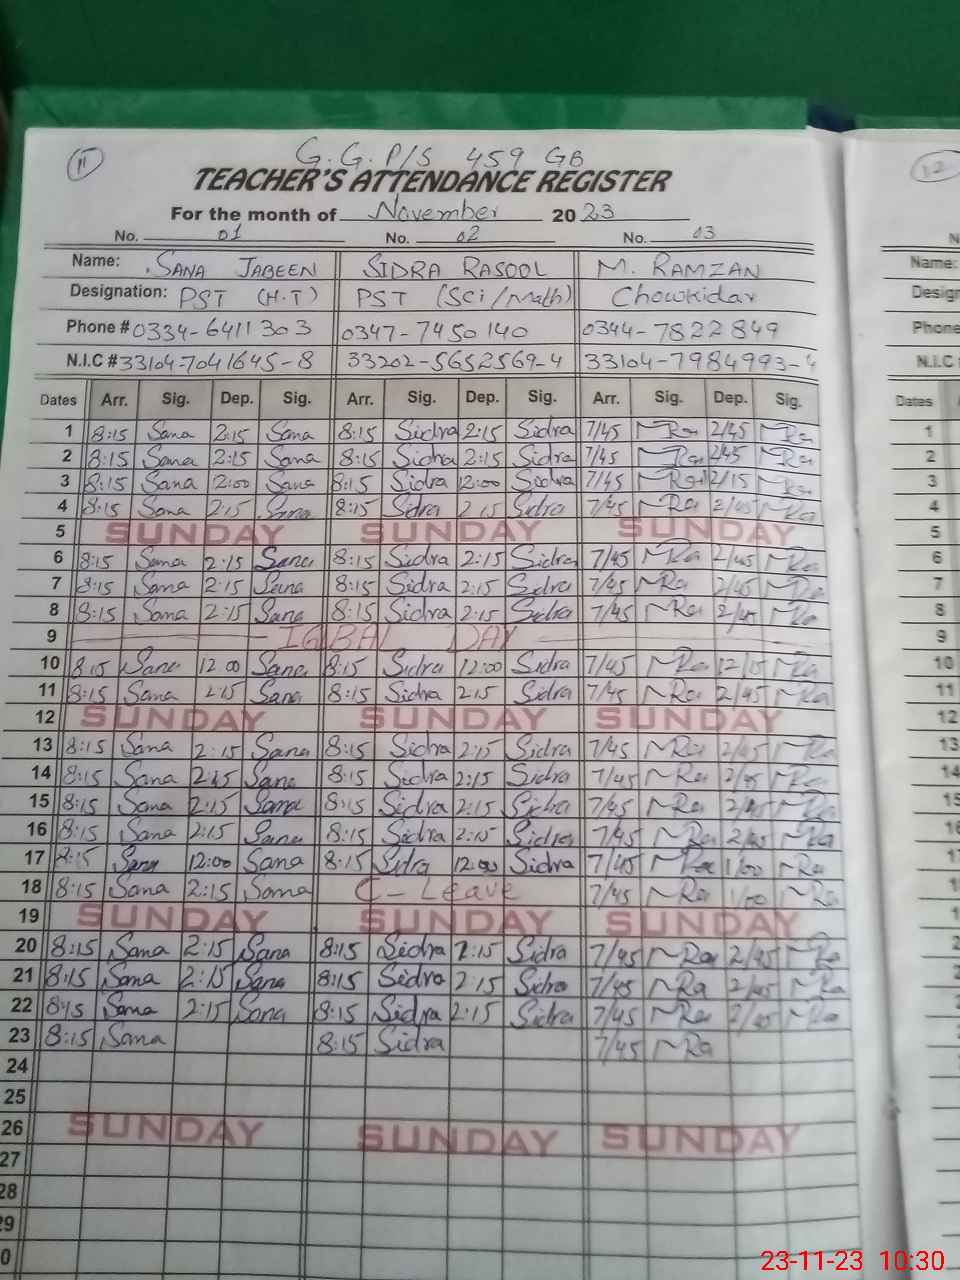 11
G.G.P/S 459 GB
12
TEACHER'S ATTENDANCE REGISTER
For the month of November 2023
No. 01 No. 02 No. 03
Name: SANA JABEEN SIDRA RASOOL M. RAMZAN Name:
Designation: PST (H.T) PST (Sci/Math) Chowkidar
Phone # 0334-6411303 0347-7450140 0344-7822849 Phone
N.I.C # 33104-7041645-8 33202-5652569-4 33104-7984993-4 N.I.C
Dates Arr. Sig. Dep. Sig. Arr. Sig. Dep. Sig. Arr. Sig. Dep. Sig. Dates
1 8:15 Sana 2:15 Sana 8:15 Sidra 2:15 Sidra 7/45 Ra 2/45 Ra 1
2 8:15 Sana 2:15 Sana 8:15 Sidra 2:15 Sidra 7/45 Ra 2/45 Ra 2
3 8:15 Sana 12:00 Sana 8:15 Sidra 12:00 Sidra 7/45 Ra 2/15 Ra 3
4 8:15 Sana 2:15 Sana 8:15 Sidra 2:15 Sidra 7/45 Ra 2/45 Ra 4
5 SUNDAY SUNDAY SUNDAY 5
6 8:15 Sana 2:15 Sana 8:15 Sidra 2:15 Sidra 7/45 Ra 2/45 Ra 6
7 8:15 Sana 2:15 Sana 8:15 Sidra 2:15 Sidra 7/45 Ra 2/45 Ra 7
8 8:15 Sana 2:15 Sana 8:15 Sidra 2:15 Sidra 7/45 Ra 2/45 Ra 8
9 IQBAL DAY 9
10 8:15 Sana 12:00 Sana 8:15 Sidra 12:00 Sidra 7/45 Ra 12/15 Ra 10
11 8:15 Sana 2:15 Sana 8:15 Sidra 2:15 Sidra 7/45 Ra 2/45 Ra 11
12 SUNDAY SUNDAY SUNDAY 12
13 8:15 Sana 2:15 Sana 8:15 Sidra 2:15 Sidra 7/45 Ra 2/45 Ra 13
14 8:15 Sana 2:15 Sana 8:15 Sidra 2:15 Sidra 7/45 Ra 2/45 Ra 14
15 8:15 Sana 2:15 Sana 8:15 Sidra 2:15 Sidra 7/45 Ra 2/45 Ra 15
16 8:15 Sana 2:15 Sana 8:15 Sidra 2:15 Sidra 7/45 Ra 2/45 Ra
17 8:15 Sana 12:00 Sana 8:15 Sidra 12:00 Sidra 7/45 Ra 1/00 Ra
18 8:15 Sana 2:15 Sana C-Leave 7/45 Ra 1/00 Ra
19 SUNDAY SUNDAY SUNDAY
20 8:15 Sana 2:15 Sana 8:15 Sidra 2:15 Sidra 7/45 Ra 2/45 Ra
21 8:15 Sana 2:15 Sana 8:15 Sidra 2:15 Sidra 7/45 Ra 2/45 Ra
22 8:15 Sana 2:15 Sana 8:15 Sidra 2:15 Sidra 7/45 Ra 2/45 Ra
23 8:15 Sana 8:15 Sidra 7/45 Ra
24
25
26 SUNDAY SUNDAY SUNDAY
27
28
29
23-11-23 10:30